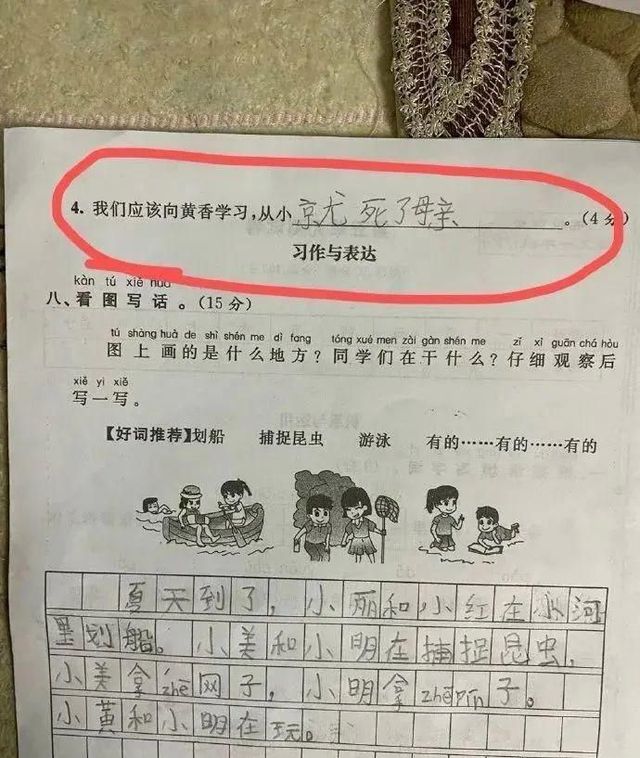 4. 我们应该向黄香学习,从小京尤死了母亲。(4分)
习作与表达
kàn tú xiě huà
八、看图写话。(15分)
tú shàng huà de shì shén me dì fang tóng xué men zài gàn shén me zǐ xì guān chá hòu
图上画的是什么地方?同学们在干什么?仔细观察后
xiě yi xiě
写一写。
【好词推荐】划船 捕捉昆虫 游泳 有的……有的……有的
夏天到了,小丽和小红在小河
里划船。小美和小明在捕捉昆虫,
小美拿zhē网子,小明拿zhē pín子。
小黄和小明在玩。